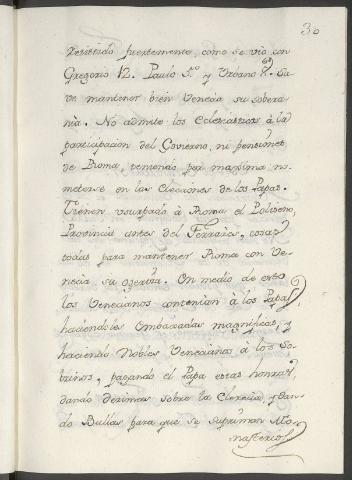 30
resistido fuertemente, como se vio con
Gregorio 12. Paulo 5.º y Urbano 8.º Sa-
ve mantener bien Venecia su sobera-
nia. No admite los Eclesiasticos à la
participacion del Govierno, ni pensiones
de Roma, teniendo por maxima no
meterse en las Elecciones de los Papas.
Tienen usurpado à Roma el Polisino,
Provincia antes del Ferrarès, cosas
todas para mantener Roma con Ve-
necia su
En medio de esto
los Venecianos contentan à los Papas,
haciendoles Embaxadas magnificas, y
haciendo Nobles Venecianos à los So-
brinos, pagando el Papa estas honras,
dando decimas sobre la Clerecia, y dan-
do Bullas para que se supriman Mo-
nasterios